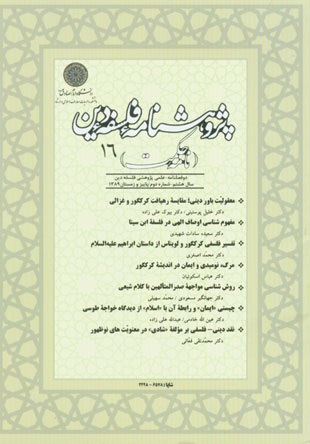 پژوهشنامه فلسفه دین
(نامه حکمت)
۱۶
دوفصلنامه علمی پژوهشی فلسفه دین
سال هشتم، شماره دوم، پاییز و زمستان ۱۳۸۹
معقولیت باور دینی؛ مقایسۀ رهیافت کرکگور و غزالی
دکتر خلیل پوستینی / دکتر بیوک علی زاده
مفهوم شناسی اوصاف الهی در فلسفۀ ابن سینا
دکتر سعیده سادات شهیدی
تفسیر فلسفی کرکگور و لویناس از داستان ابراهیم علیه‌السلام
دکتر محمد اصغری
مرگ، نومیدی و ایمان در اندیشۀ کرکگور
دکتر عباس اسکوئیان
روش شناسی مواجهۀ صدرالمتألهین با کلام شیعی
دکتر جهانگیر مسعودی / محمد سهیلی
چیستی «ایمان» و رابطۀ آن با «اسلام» از دیدگاه خواجۀ طوسی
دکتر عین الله خادمی / عبدالله علی زاده
نقد دینی - فلسفی بر مؤلفۀ «شادی» در معنویت های نوظهور
دکتر محمدتقی فعالی
شاپا: ۶۵۷۸-۲۲۲۸